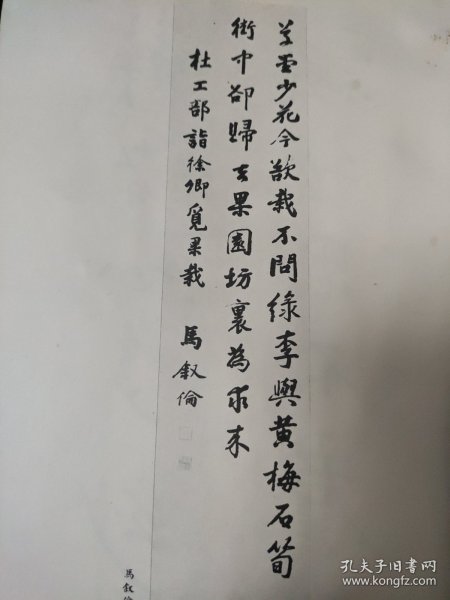 草堂少花今欲栽不問綠李與黄梅石筍
街中卻歸去果園坊裏為求来
杜工部詣徐卿覓果栽 馬叙倫
馬叙倫
孔夫子旧书网
www.kongfz.com